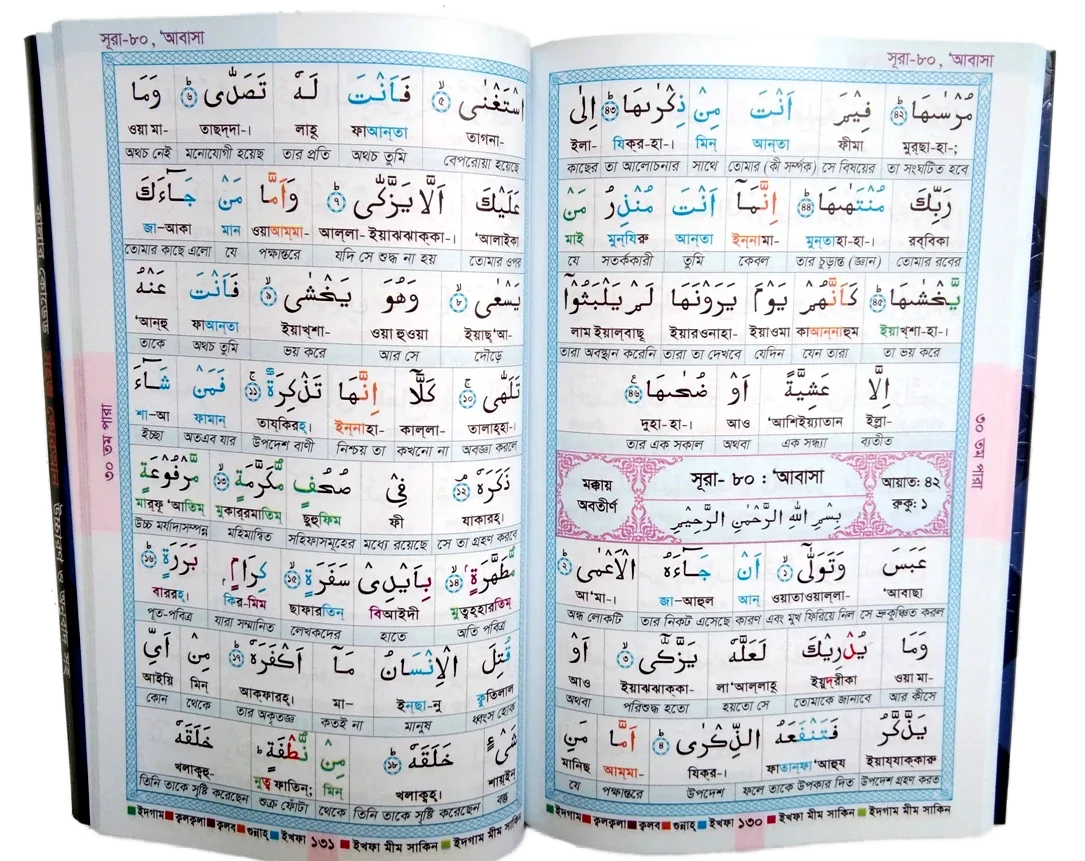 সূরা-৮০, 'আবাসা
مُرْسٰىهَا ﴿٤٢﴾ فِيْمَ اَنْتَ مِنْ ذِكْرٰىهَا ﴿٤٣﴾ اِلٰى
মুর্‌ছা-হা-; ফীমা আন্‌তা মিন্ যিক্‌র-হা-। ইলা-
তা সংঘটিত হবে সে বিষয়ের তোমার (কী সম্পর্ক) সাথে তা আলোচনার কাছের
رَبِّكَ مُنْتَهٰىهَا ﴿٤٤﴾ اِنَّمَآ اَنْتَ مُنْذِرُ مَنْ
রব্বিকা মুন্‌তাহা-হা-। ইন্নামা- আন্‌তা মুন্‌যিরু মাই
তোমার রবের তার চূড়ান্ত (জ্ঞান) কেবল তুমি সতর্ককারী যে
يَّخْشٰىهَا ﴿٤٥﴾ كَاَنَّهُمْ يَوْمَ يَرَوْنَهَا لَمْ يَلْبَثُوْٓا
ইয়াখ্‌শা-হা-। কাআন্নাহুম ইয়াওমা ইয়ারওনাহা- লাম ইয়াল্‌বাছূ
তা ভয় করে যেন তারা যেদিন তারা তা দেখবে তারা অবস্থান করেনি
اِلَّا عَشِيَّةً اَوْ ضُحٰىهَا ﴿٤٦﴾
ইল্লা- 'আশিইয়্যাতান আও দুহা-হা-।
ব্যতীত এক সন্ধ্যা অথবা তার এক সকাল
মক্কায় অবতীর্ণ
সূরা- ৮০ : 'আবাসা
بِسْمِ اللّٰهِ الرَّحْمٰنِ الرَّحِيْمِ
আয়াত: ৪২
রুকু: ১
عَبَسَ وَتَوَلّٰىٓ ﴿١﴾ اَنْ جَآءَهُ الْاَعْمٰى ﴿٢﴾
'আবাছা ওয়াতাওয়াল্লা- আন্ জা-আহুল আ'মা-।
সে ভ্রুকুঞ্চিত করল এবং মুখ ফিরিয়ে নিল কারণ তার নিকট এসেছে অন্ধ লোকটি
وَمَا يُدْرِيْكَ لَعَلَّهٗ يَزَّكّٰىٓ ﴿٣﴾ اَوْ
ওয়া মা- ইয়ুদরীকা লা'আল্লাহূ ইয়াঝঝাক্কা- আও
আর কীসে তোমাকে জানাবে হয়তো সে পরিশুদ্ধ হতো অথবা
يَذَّكَّرُ فَتَنْفَعَهُ الذِّكْرٰى ﴿٤﴾ اَمَّا مَنِ
ইয়ায্‌যাক্কারু ফাতান্‌ফা'আহুয যিক্‌র-। আম্মা- মানিছ
উপদেশ গ্রহণ করত ফলে তাকে উপকার দিত উপদেশ পক্ষান্তরে যে
ইদগাম কলকলা কলব গুন্নাহ ইখফা ১৩০ ইখফা মীম সাকিন ইদগাম মীম সাকিন
৩০ তম পারা
সূরা-৮০, 'আবাসা
اسْتَغْنٰى ﴿٥﴾ فَاَنْتَ لَهٗ تَصَدّٰى ﴿٦﴾ وَمَا
তাগনা- ফাআন্‌তা লাহূ তাছদ্দা-। ওয়া মা-
বেপরোয়া হয়েছে অথচ তুমি তার প্রতি মনোযোগী হয়েছ অথচ নেই
عَلَيْكَ اَلَّا يَزَّكّٰى ﴿٧﴾ وَاَمَّا مَنْ جَآءَكَ
'আলাইকা আল্লা- ইয়াঝঝাক্কা-। ওয়াআম্মা- মান জা-আকা
তোমার ওপর যদি সে শুদ্ধ না হয় পক্ষান্তরে যে তোমার কাছে এলো
يَسْعٰى ﴿٨﴾ وَهُوَ يَخْشٰى ﴿٩﴾ فَاَنْتَ عَنْهُ
ইয়াছ্'আ- ওয়া হুওয়া ইয়াখ্‌শা- ফাআন্‌তা 'আন্‌হু
দৌড়ে আর সে ভয় করে অথচ তুমি তাকে
تَلَهّٰى ﴿١٠﴾ كَلَّآ اِنَّهَا تَذْكِرَةٌ ﴿١١﴾ فَمَنْ شَآءَ
তালাহ্‌হা-। কাল্‌লা- ইন্নাহা- তায্‌কিরহ্। ফামান্ শা-আ
অবজ্ঞা করলে কখনো না নিশ্চয় তা উপদেশ বাণী অতএব যার ইচ্ছা
ذَكَرَهٗ ﴿١٢﴾ فِيْ صُحُفٍ مُّكَرَّمَةٍ ﴿١٣﴾ مَّرْفُوْعَةٍ
যাকারহ্। ফী ছুহুফিম মুকাররমাতিম মারফূ'আতিম
সে তা গ্রহণ করবে মধ্যে রয়েছে সহিফাসমূহের মহিমান্বিত উচ্চ মর্যাদাসম্পন্ন
مُّطَهَّرَةٍ ﴿١٤﴾ بِاَيْدِيْ سَفَرَةٍ ﴿١٥﴾ كِرَامٍ بَرَرَةٍ ﴿١٦﴾
মুত্বহ্‌হারতিম বিআইদী ছাফারতিন্ কির-মিম বাররহ্।
অতি পবিত্র হাতে লেখকদের যারা সম্মানিত পূত-পবিত্র
قُتِلَ الْاِنْسَانُ مَآ اَكْفَرَهٗ ﴿١٧﴾ مِنْ اَيِّ
কুতিলাল ইন্‌ছা-নু মা- আক্‌ফারহ্। মিন্ আইয়্যি
ধ্বংস হোক মানুষ কতই না তার অকৃতজ্ঞ থেকে কোন
شَيْءٍ خَلَقَهٗ ﴿١٨﴾ مِنْ نُّطْفَةٍ خَلَقَهٗ
শায়ইন্ খলাক্বহ্। মিন্ নুত্ব ফাতিন্; খলাক্বহূ-
বস্তু তিনি তাকে সৃষ্টি করেছেন থেকে শুক্র ফোঁটা তিনি তাকে সৃষ্টি করেছেন
ইদগাম কলকলা কলব গুন্নাহ ইখফা ১৩১ ইখফা মীম সাকিন ইদগাম মীম সাকিন
৩০ তম পারা